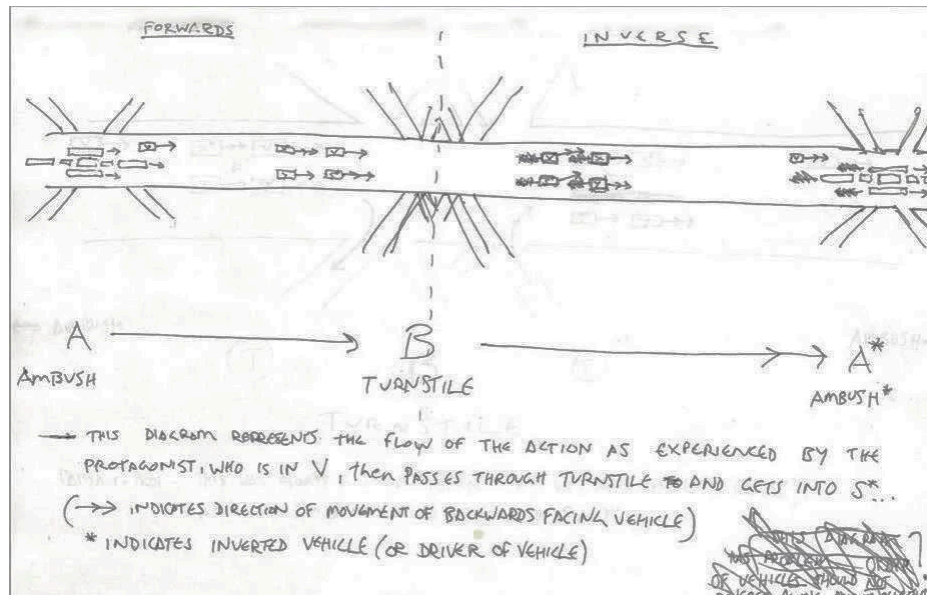 FORWARDS
INVERSE
A
B
A*
AMBUSH
TURNSTILE
AMBUSH*
→ THIS DIAGRAM REPRESENTS THE FLOW OF THE ACTION AS EXPERIENCED BY THE
PROTAGONIST, WHO IS IN V, then PASSES THROUGH TURNSTILE AND GETS INTO S*...
(→→ INDICATES DIRECTION OF MOVEMENT OF BACKWARDS FACING VEHICLE)
* INDICATES INVERTED VEHICLE (OR DRIVER OF VEHICLE)
DIAGRAM
OF VEHICLES SHOULD NOT